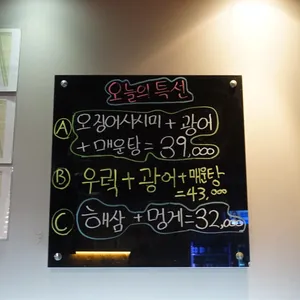 오늘의 특선
Ⓐ 오징어사시미 + 광어
+ 매운탕 = 39,000
Ⓑ 우럭 + 광어 + 매운탕
= 43,000
Ⓒ 해삼 + 멍게 = 32,000